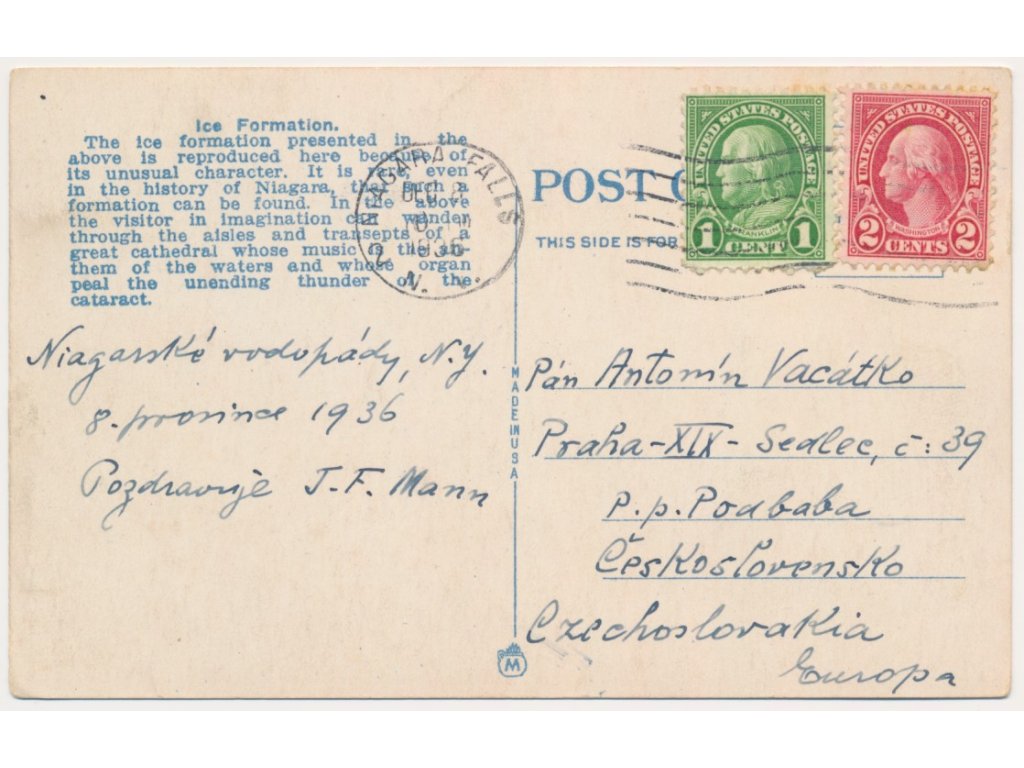 Ice Formation.
The ice formation presented in the
above is reproduced here because of
its unusual character. It is rare even
in the history of Niagara, that such a
formation can be found. In the above
the visitor in imagination can wander
through the aisles and transepts of a
great cathedral whose music is the an-
them of the waters and whose organ
peal the unending thunder of the
cataract.
NIAGARA FALLS
DEC 8
1936
N. Y.
2
POST
THIS SIDE IS FOR
UNITED STATES POSTAGE
FRANKLIN
1 CENT 1
UNITED STATES POSTAGE
WASHINGTON
2 CENTS 2
Niagarské vodopády, N.Y.
8. prosince 1936
Pozdravuje J.F. Mann
MADE IN USA
M
Pán Antonín Vacátko
Praha-XIX- Sedlec, č: 39
p.p. Podbaba
Československo
Czechoslovakia
Europa